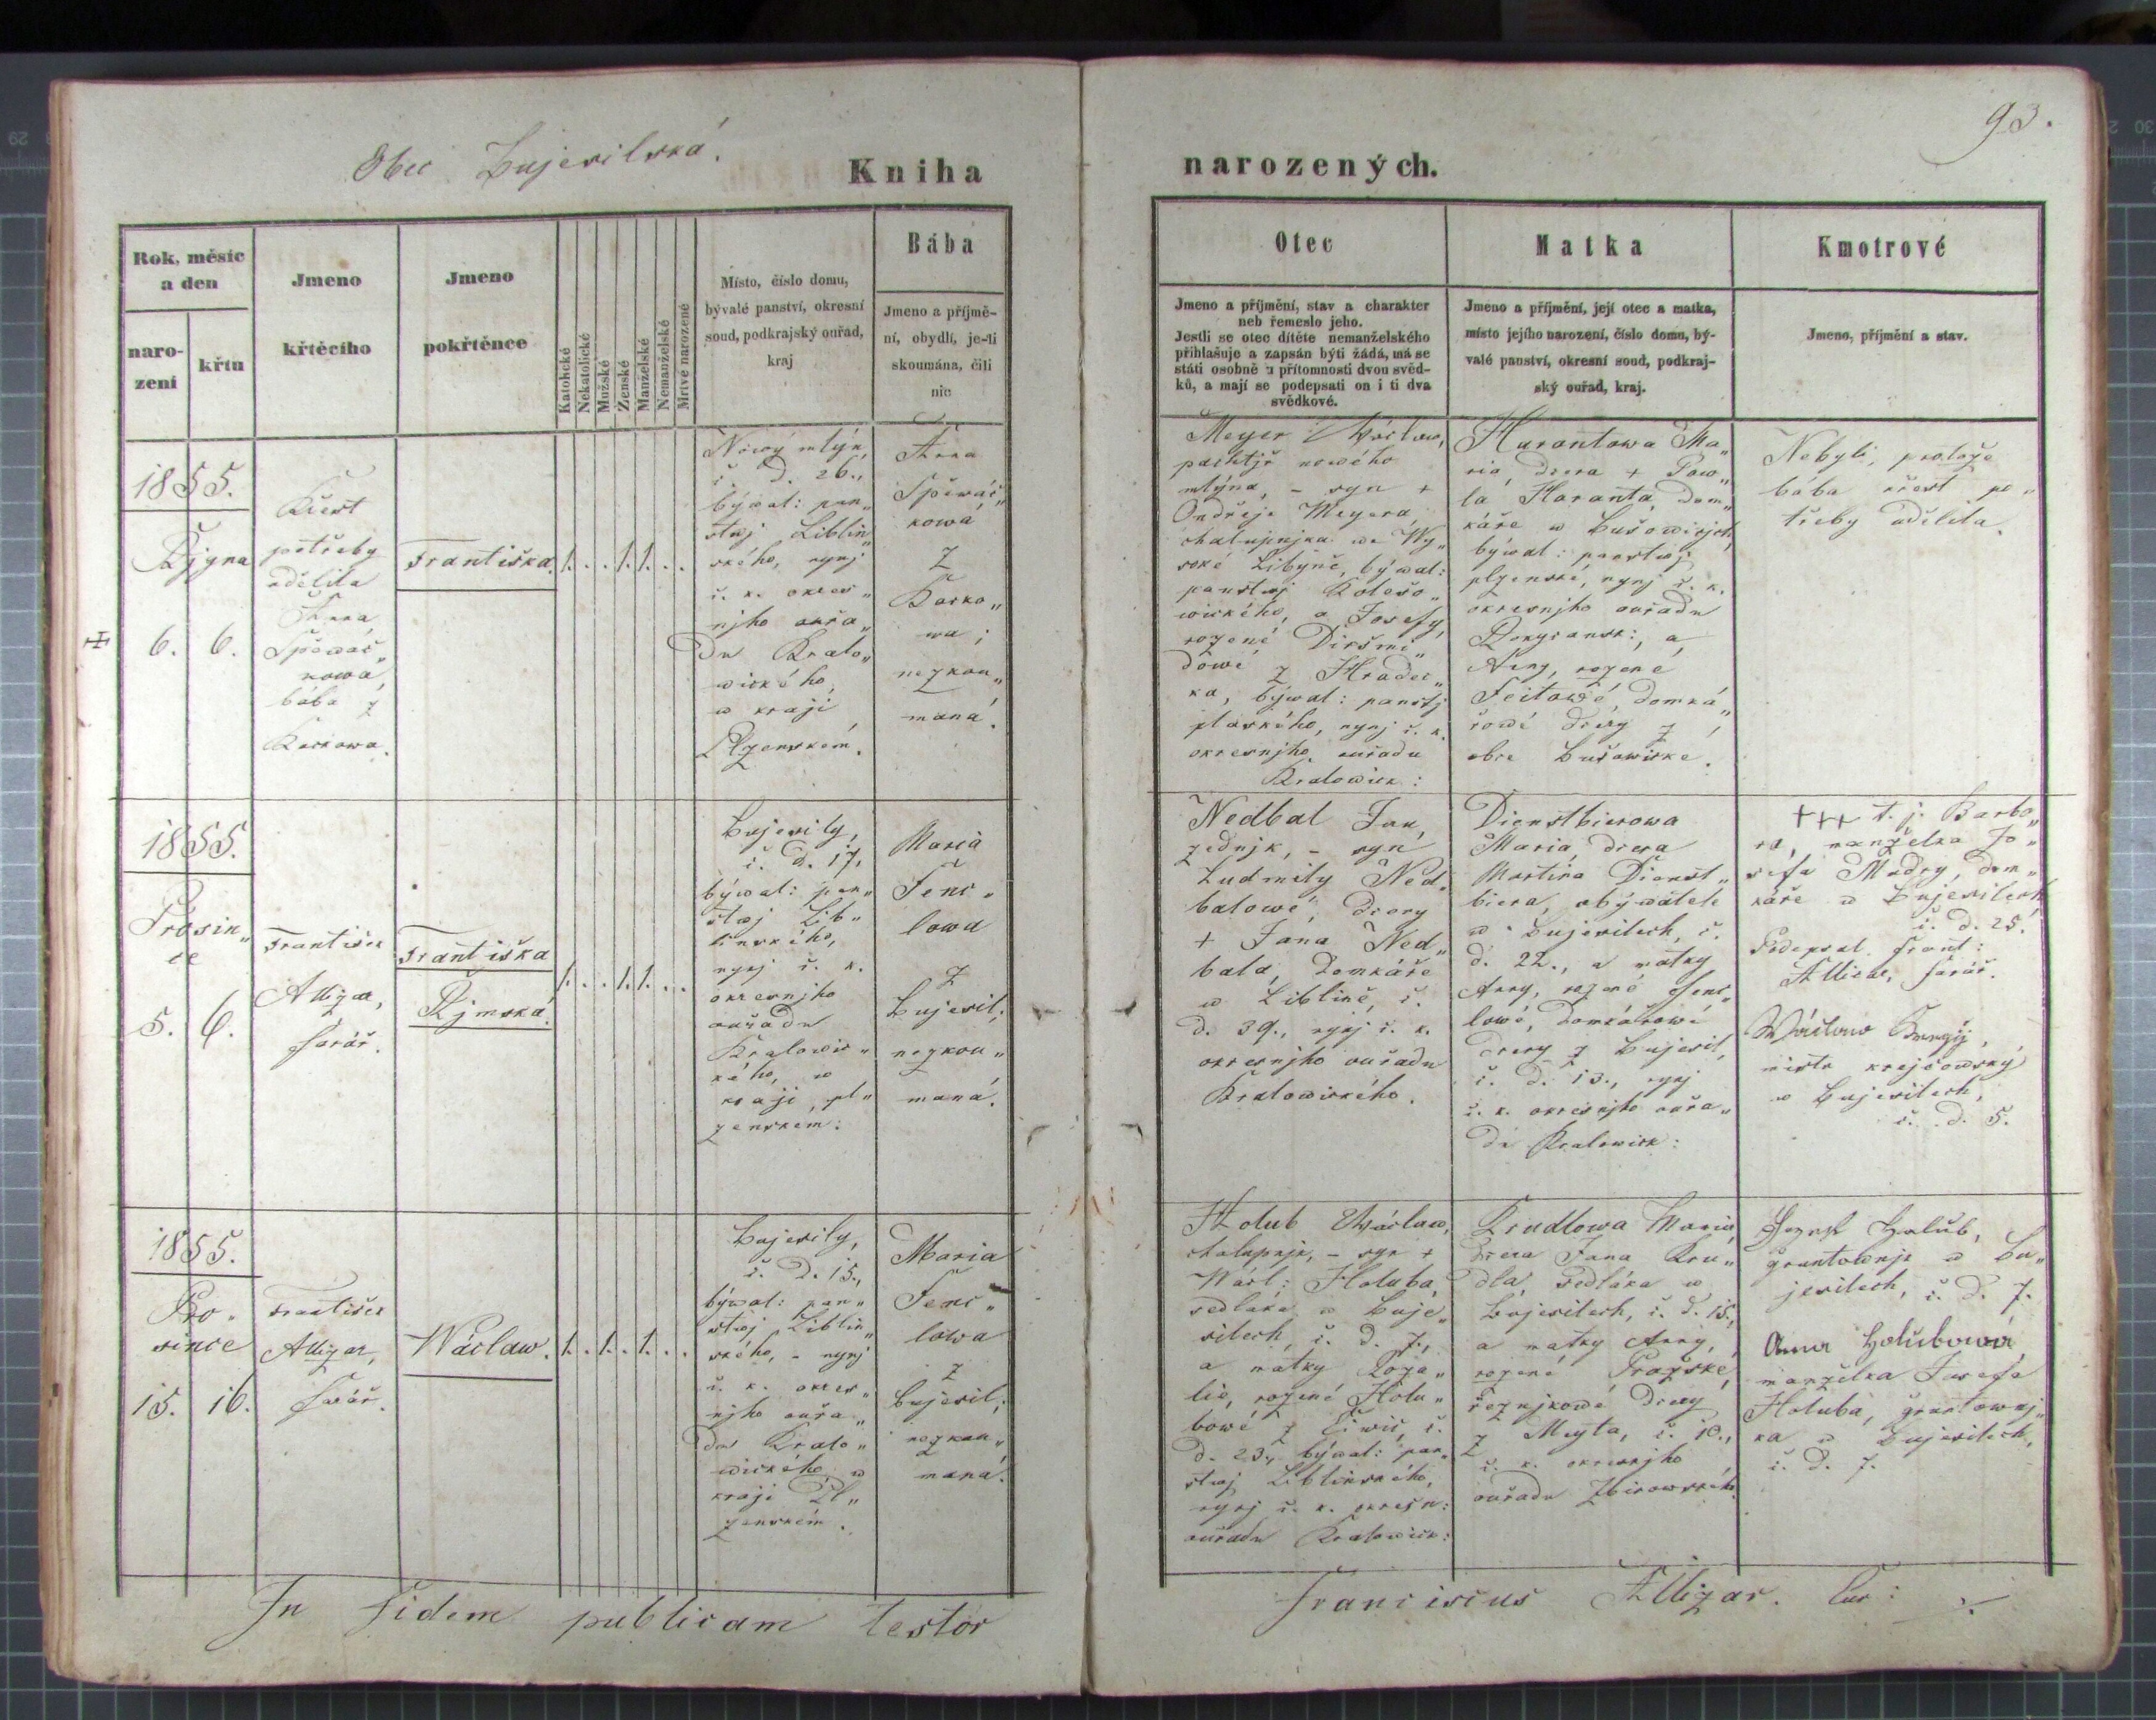 93.
Obec Bujesilská.
Kniha
narozených.
Rok, měsíc
a den
naro-
zení
křtu
Jmeno
křtěcího
Jmeno
pokřtěnce
Katolické
Nekatolické
Mužské
Ženské
Manželské
Nemanželské
Mrtvě narozené
Místo, číslo domu,
bývalé panství, okresní
soud, podkrajský ouřad,
kraj
Bába
Jmeno a příjmě-
ní, obydlí, je-li
skoumána, čili
nic
Otec
Jmeno a příjmění, stav a charakter
neb řemeslo jeho.
Jestli se otec dítěte nemanželského
přihlašuje a zapsán býti žádá, má se
státi osobně u přítomnosti dvou svěd-
ků, a mají se podepsati on i ti dva
svědkové.
Matka
Jmeno a příjmění, její otec a matka,
místo jejího narození, číslo domu, bý-
valé panství, okresní soud, podkraj-
ský ouřad, kraj.
Kmotrové
Jmeno, příjmění a stav.
1855.
Řjgna
6. 6.
Křest
potřeby
udělila
Anna
Spěwač„
kowá,
bába z
Kackowa.
Františka.
1. . . 1. 1. . .
Nowý mlýn,
č. d. 26.,
býwal: pan„
stwj Liblin„
ského, nynj
c. k. okres„
njho auřa„
du Kralo„
wického,
w kraji
Plzenském.
Anna
Spěwač„
kowá
z
Kacko„
wa;
nezkou„
maná.
Meyer Wáclaw,
pachtjř nowého
mlýna, - syn +
Ondřeje Meyera,
chalupnjka we Wy„
soké Libyně, býwal:
panstwj Kolešo„
wického, a Josefy,
rozené Diršmi„
dowé z Hradec„
ka, býwal: panstwj
plaského, nynj c. k.
okresnjho auřadu
Kralowick:
Harantowa Ma„
ria, dcera + Paw„
la Haranta, dom„
káře w Bušowicjch,
býwal: panstwj
plzenské, nynj c. k.
okresnjho auřadu
Rokycansk:, a
Anny, rozené
Feitowé, domká„
řowé dcery z
obce Bušowické.
Nebyli, protože
bába křest po„
třeby udělila.
1855.
Prosin„
ce
5. 6.
František
Alligar,
farář.
Františka
Řjmská.
1. . . 1. 1. . .
Bujesily,
č. d. 17,
býwal: pan„
stwj Lib„
linského,
nynj c. k.
okresnjho
auřadu
Kralowic„
kého, w
kraji pl„
zenském:
Maria
Fenc„
lowa
z
Bujesil;
nezkou„
maná.
Nedbal Jan,
zednjk, - syn
Ludmily Ned„
balowé, dcery
+ Jana Ned„
bala, domkáře
w Liblině, č.
d. 39., nynj c. k.
okresnjho auřadu
Kralowického.
Dienstbierowa
Maria, dcera
Martina Dienst„
biera, obýwatele
w Bujesilech, č.
d. 22., a matky
Anny, rozené Fenc„
lowé, domkářowé
dcery z Bujesil,
č. d. 13., nynj
c. k. okresnjho auřa„
du Kralowick:
+++ t. j. Barbo„
ra, manželka Jo„
sefa Mudry, dom„
káře w Bujesilech
č. d. 25.
Podepsal Frant:
Alligar, farář.
Wáclaw
mistr krejčowský
w Bujesilech,
č. d. 5.
1855.
Pro„
since
15. 16.
František
Alligar,
farář.
Wáclaw.
1. . 1. . 1. . .
Bujesily,
č. d. 15.,
býwal: pan„
stwj Liblin„
ského, - nynj
c. k. okres„
njho auřa„
du Kralo„
wického, w
kraji Pl„
zenském.
Maria
Fenc„
lowa
z
Bujesil;
nezkou„
maná.
Holub Wáclaw,
chalupnjk, - syn +
Wácl: Holuba,
sedláka w Buje„
silech, č. d. 7.,
a matky Roza„
lie, rozené Holu„
bowé z č.
d. 23., býwal: pan„
stwj Liblinského,
nynj c. k. okresn:
auřadu Kralowick:
Krudlowa Maria,
dcera Jana Kru„
dla, sedláka w
Bujesilech, č. d. 15.,
a matky Anny,
rozené Pražské,
řeznjkowé dcery
z Meyta, č. 10.,
c. k. okresnjho
auřadu Zbirowského.
Josef Holub,
gruntownjk w Bu„
jesilech, č. d. 7.
Anna Holubowá,
manželka Josefa
Holuba, gruntownj„
ka w Bujesilech,
č. d. 7.
In fidem publicam testor
Franciscus Alligar. Cur: